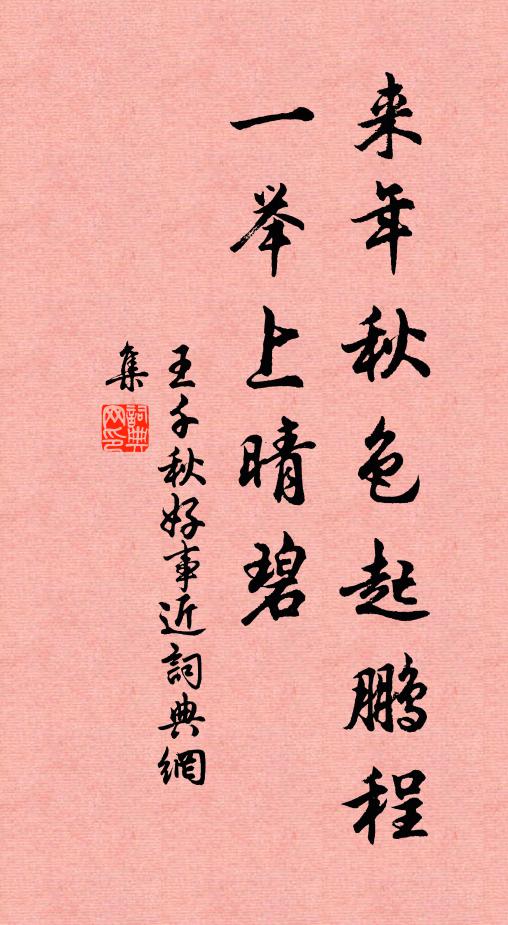 来年秋色起鹏程
一举上晴碧
王千秋好事近詞典網
集
詞典
网印